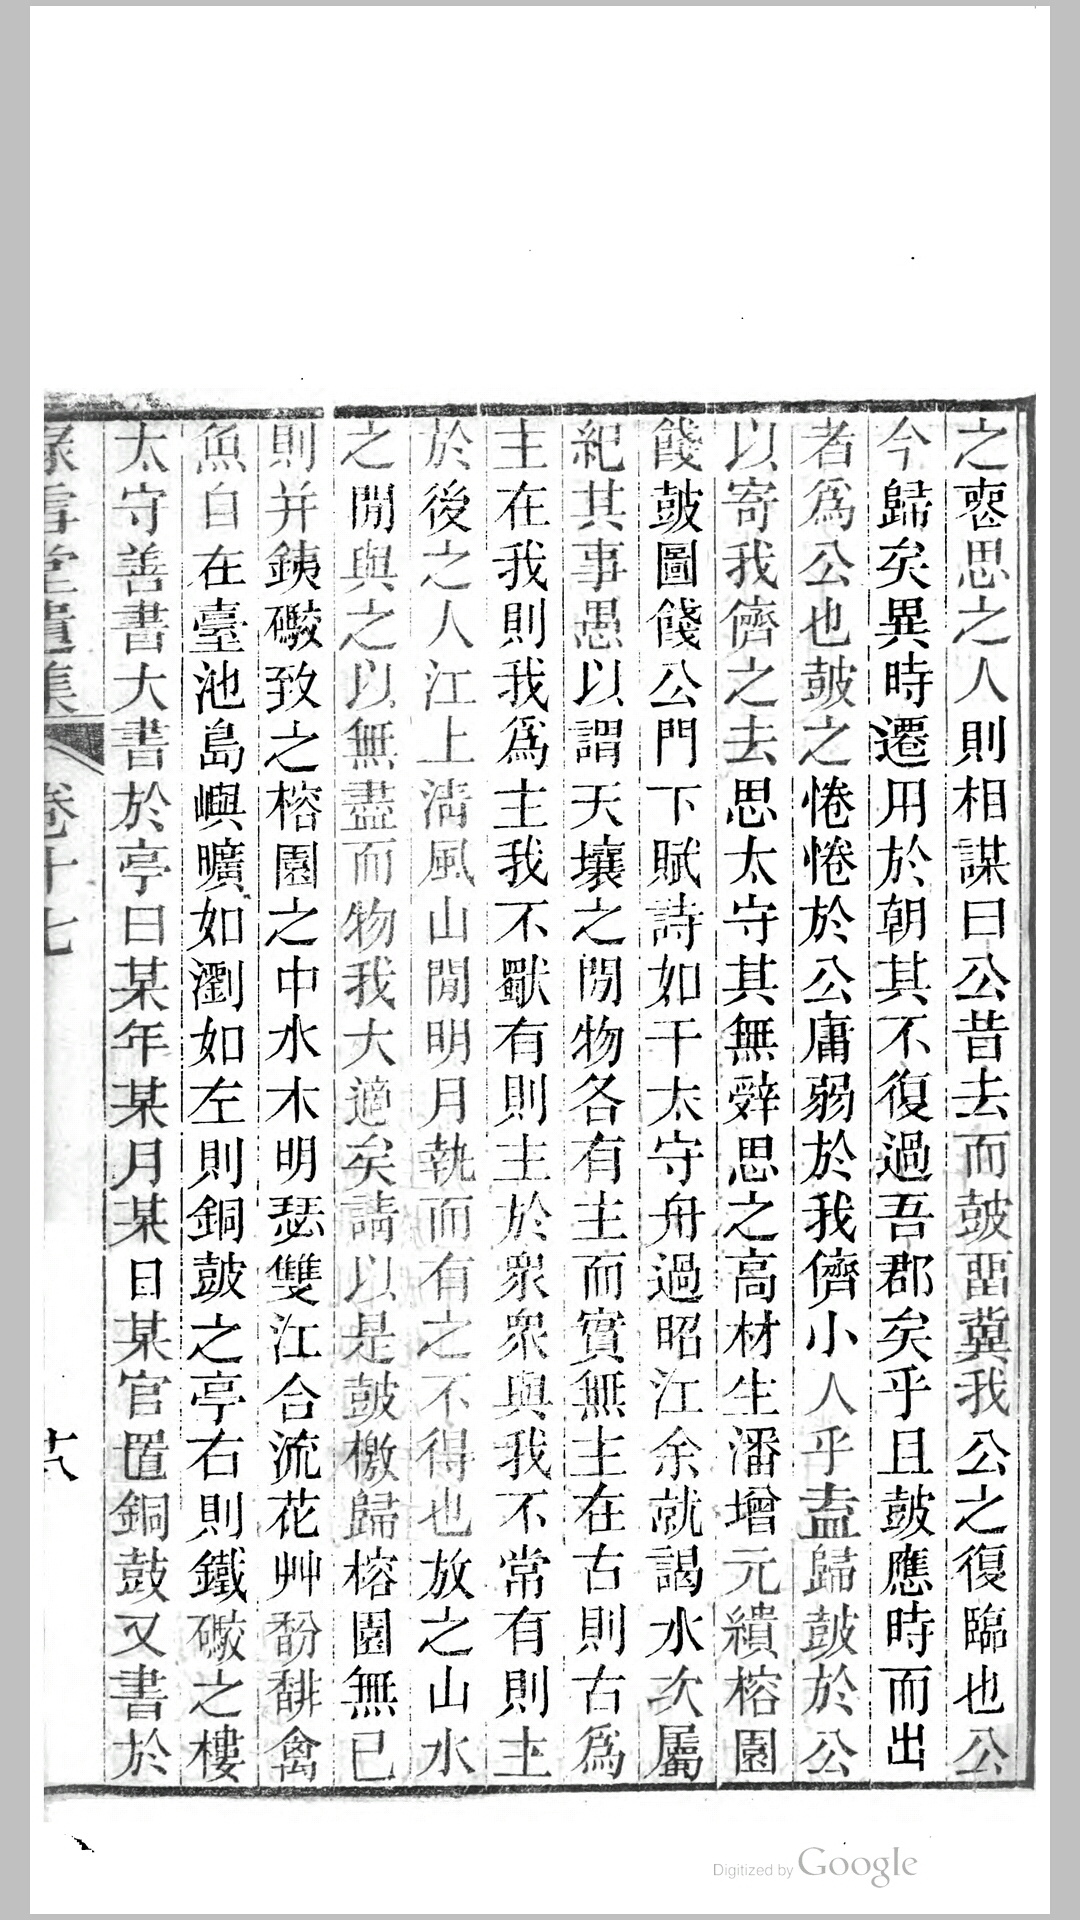 之㤅思之人則相謀曰公昔去而皷畱冀我公之復臨也公
今歸矣異時遷用於朝其不復過吾郡矣乎且皷應時而出
者爲公也皷之惓惓於公庸弱於我儕小人乎盍歸皷於公
以寄我儕之去思太守其無辭思之高材生潘增元繢榕園
餞皷圖餞公門下賦詩如干太守舟過昭江余就謁水次屬
紀其事愚以謂天壤之閒物各有主而實無主在古則古爲
主在我則我爲主我不獸有則主於衆衆與我不常有則主
於後之人江上淸風山閒明月執而有之不得也放之山水
之閒與之以無盡而物我大適矣請以是皷檄歸榕園無已
則并銕礮致之榕園之中水木明瑟雙江合流花艸馚馡禽
魚自在臺池島嶼曠如瀏如左則銅皷之亭右則鐵礮之樓
太守善書大書於亭曰某年某月某日某官置銅鼓又書於
雪堂遺集
卷十七
十八
Digitized by Google